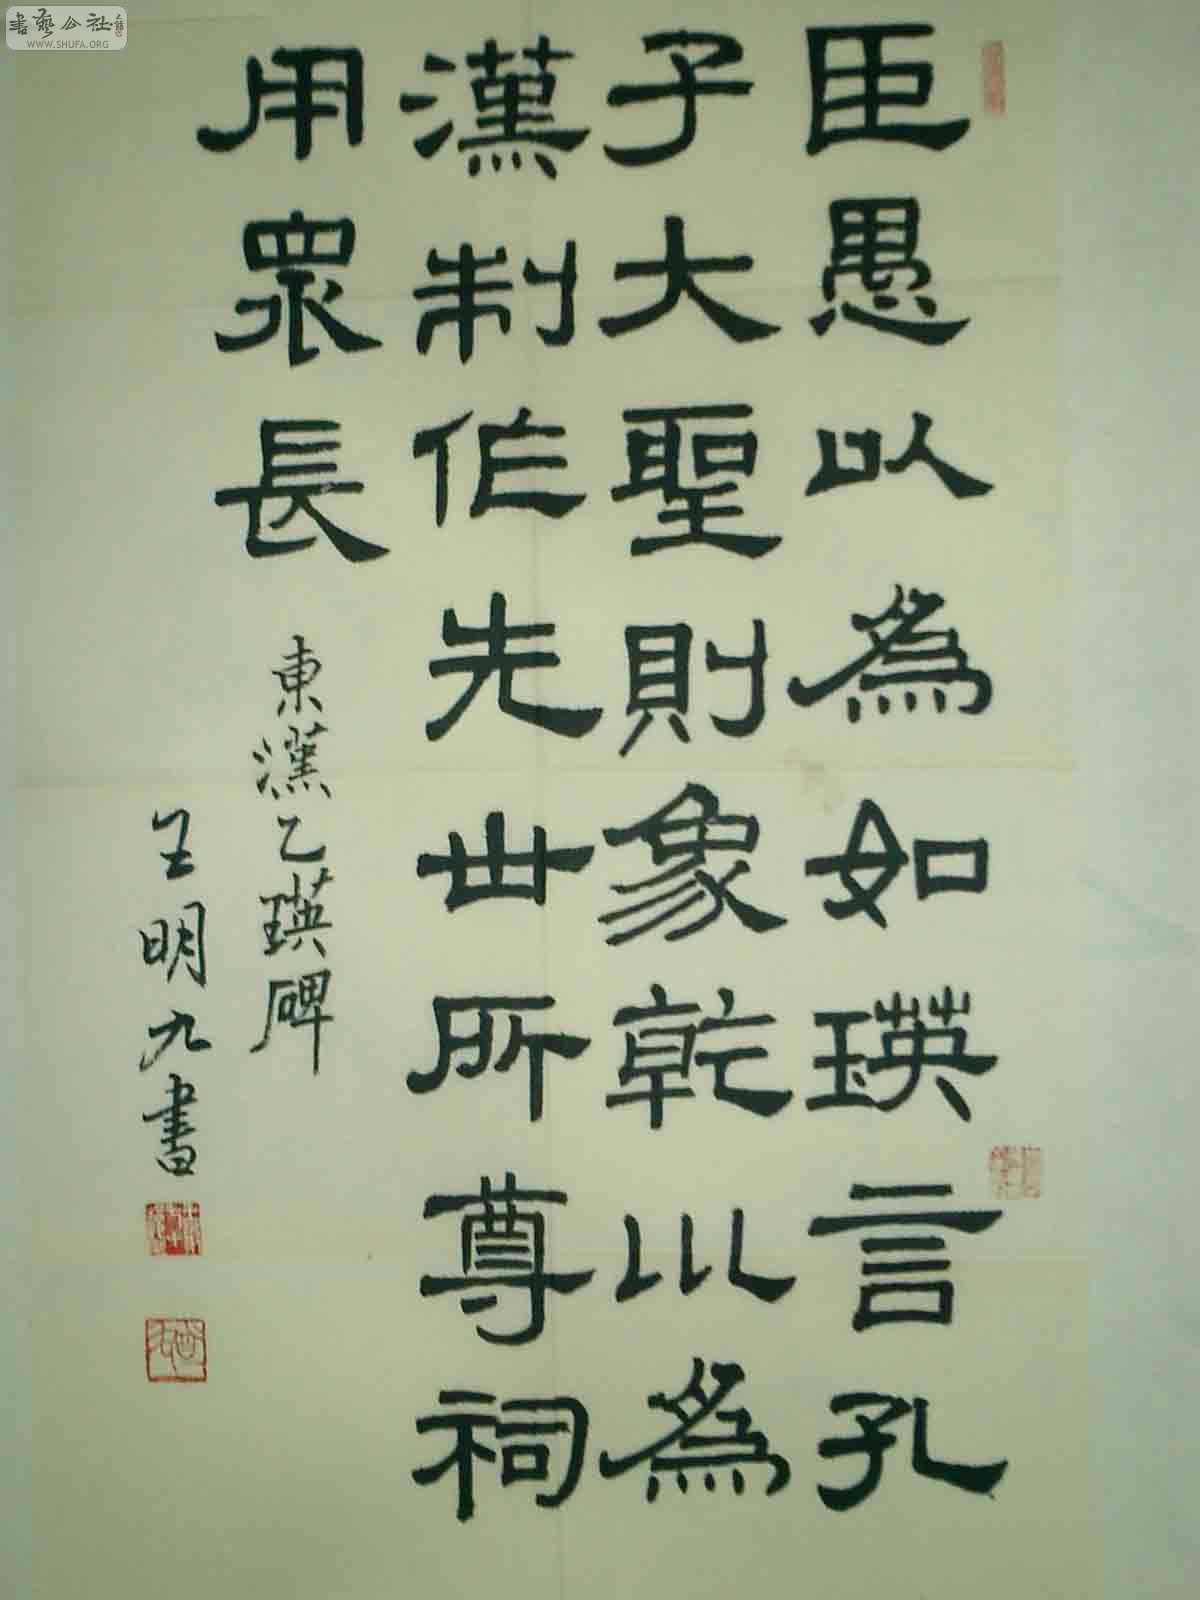 臣愚以為如瑛言孔
子大聖則象乾川為
漢制作先世所尊祠
用眾長
東漢乙瑛碑
王明九書
書藝公社
WWW.SHUFA.ORG